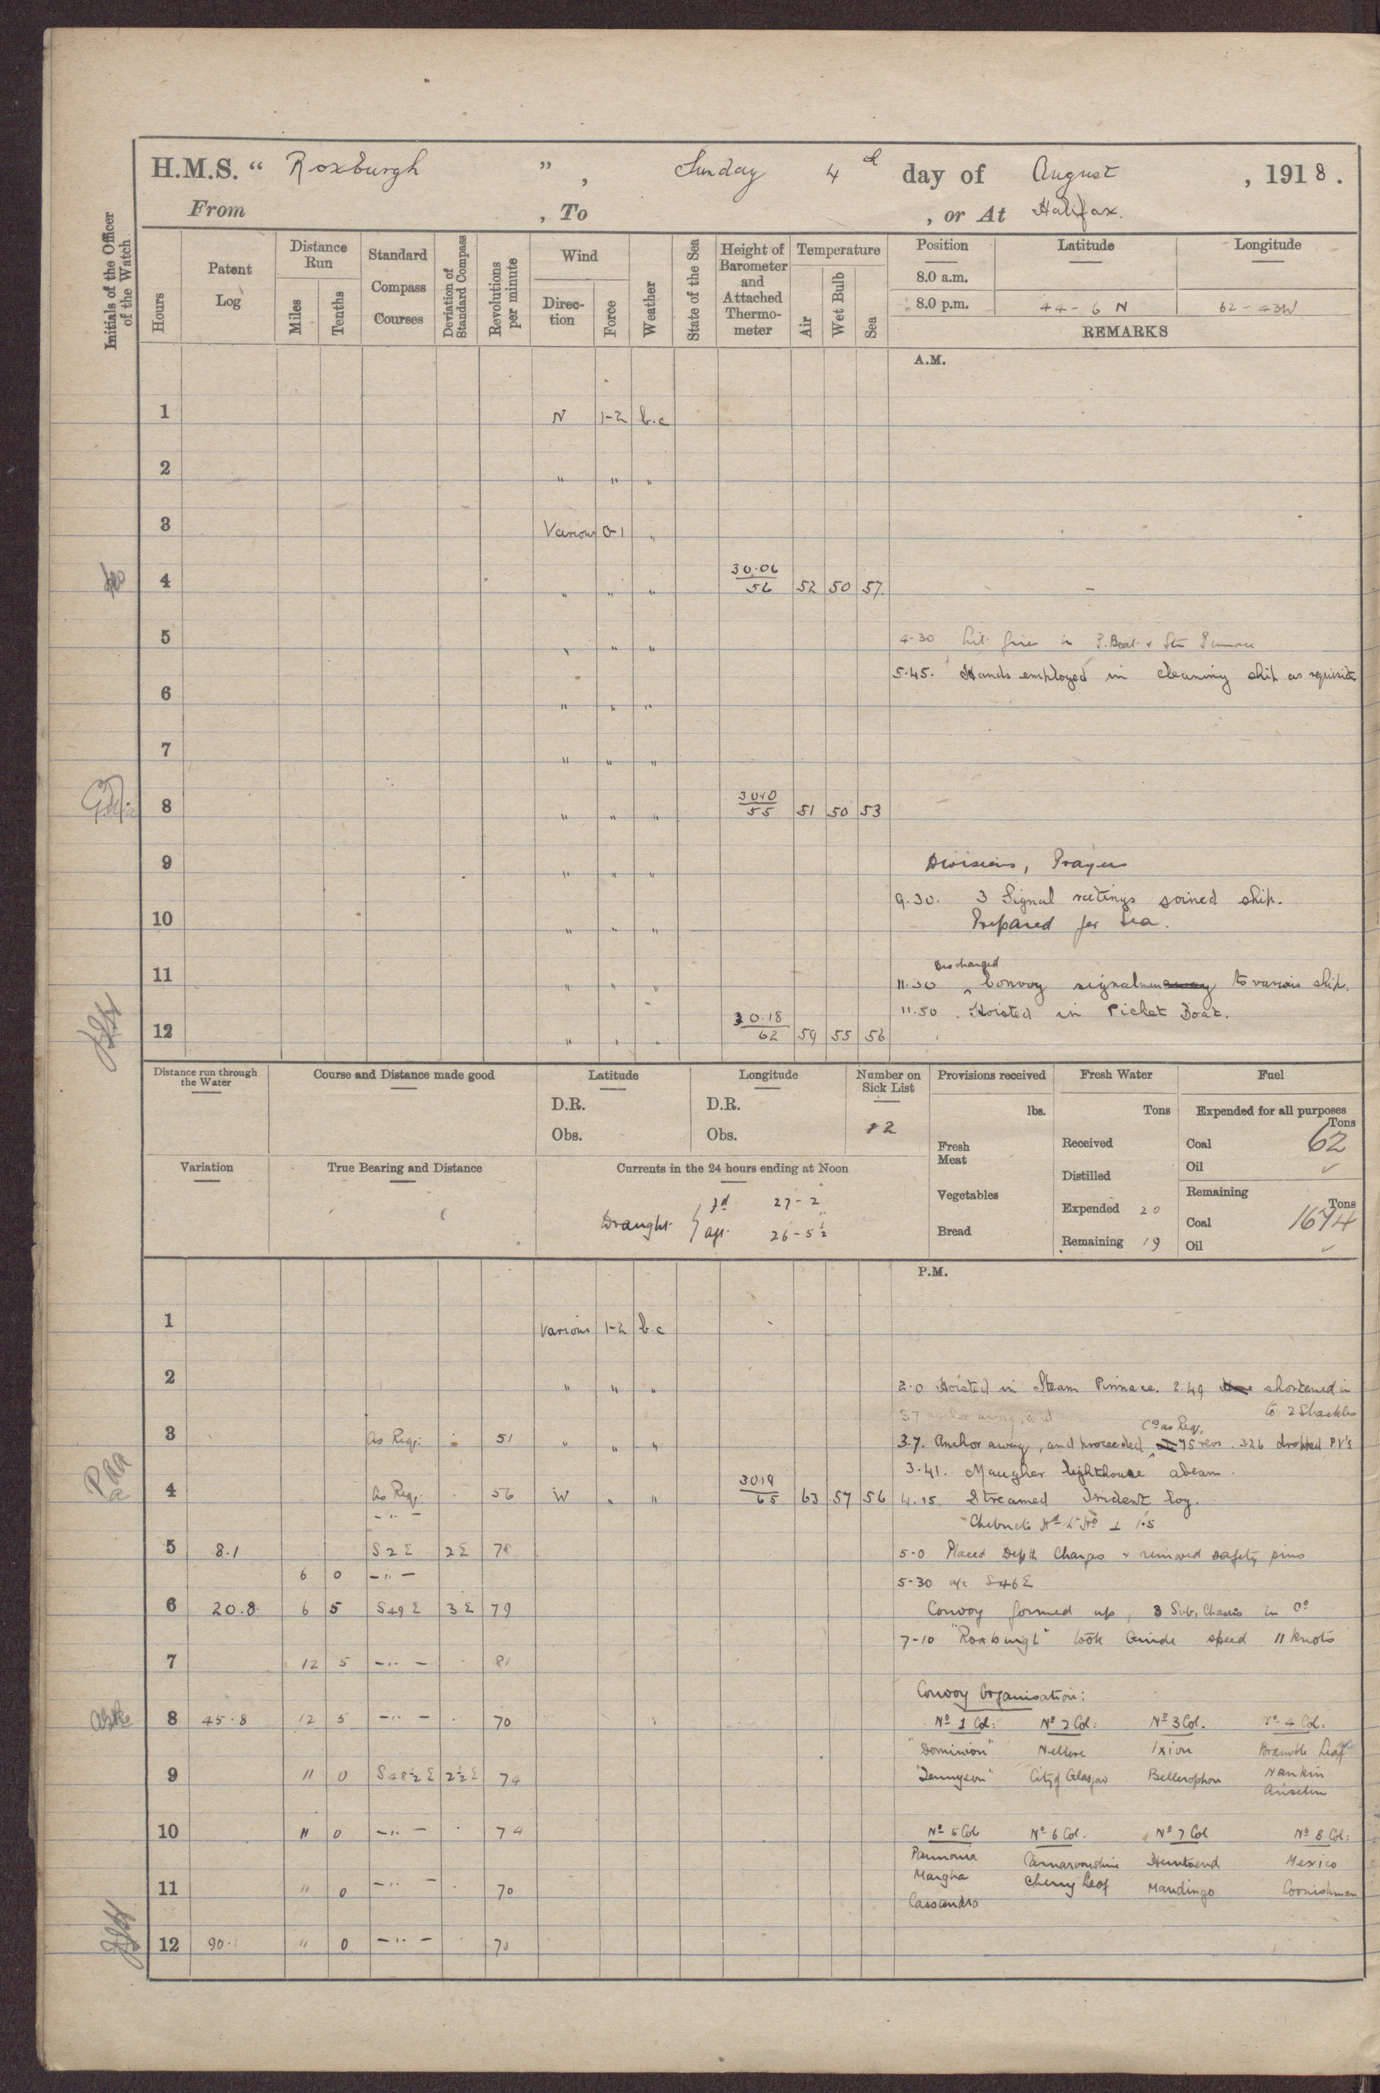 H.M.S. “ Roxburgh ” , Sunday 4th day of August , 1918 .
From , To , or At Halifax.
Initials of the Officer of the Watch.
Hours
Patent Log
Distance Run
Miles
Tenths
Standard Compass Courses
Deviation of Standard Compass
Revolutions per minute
Wind
Direction
Force
Weather
State of the Sea
Height of Barometer and Attached Thermometer
Temperature
Air
Wet Bulb
Sea
Position Latitude Longitude
8.0 a.m.
8.0 p.m. 44 - 6 N 62 - 43W
REMARKS
A.M.
1 N 1-2 b.c
2 " " "
3 Various 0-1 "
4 " " " 30.06/56 52 50 57
5 " " "
4-30 Lit fires in P. Boat & Stm Pinnace
5.45. Hands employed in cleaning ship as requisite
6 " " "
7 " " "
8 " " " 30.10/55 51 50 53
9 " " " Divisions, Prayers
9.30. 3 Signal ratings joined ship.
10 " " " Prepared for Sea.
11 " " " 11.30 Discharged Convoy signalmen to various ships.
11.50. Hoisted in Picket Boat.
12 " " " 30.18/62 59 55 56
Distance run through the Water
Course and Distance made good
Latitude
D.R.
Obs.
Longitude
D.R.
Obs.
Number on Sick List
12
Provisions received
lbs.
Fresh Meat
Vegetables
Bread
Fresh Water
Tons
Received
Distilled
Expended 20
Remaining 19
Fuel
Expended for all purposes
Tons
Coal 62
Oil ✓
Remaining
Tons
Coal 1674
Oil ✓
Variation
True Bearing and Distance
Currents in the 24 hours ending at Noon
Draught { fd 27 - 2
aft 26 - 5½
P.M.
1 Various 1-2 b.c
2 " " " 2.0 Hoisted in Steam Pinnace. 2.49 shortened in
to 2 Shackles
Co as Req.
3 As Req: 51 " " " 3.7. Anchor aweigh, and proceeded 75 revs. 326 dropped PV's
3.41. Maugher lighthouse abeam.
4 As Req: 56 W " " 30.19/65 63 57 56 4.15 Streamed Trident Log.
Chebucto Hd Lt Ho ⊥ 1.5
5 8.1 S 2 E 2E 78 5-0 Placed Depth Charges & removed safety pins
6 0 - " - 5-30 a/c S46E
6 20.8 6 5 S49E 3E 79 Convoy formed up, 3 Sub. Chasers in Co
7-10 "Roxburgh" took Guide speed 11 knots
7 12 5 - " - 81
Convoy Organisation:
8 45.8 12 5 - " - 70
9 11 0 S48½E 2½E 74
10 11 0 - " - 74
11 " 0 - " - 70
12 90. " 0 - " - 70
No 1 Col: No 2 Col: No 3 Col. No 4 Col.
"Dominion" Nellore Ixion Bramble Leaf
"Tennyson" City of Glasgow Bellerophon Nankin
Anselm
No 5 Col No 6 Col. No 7 Col No 8 Col:
Pannonia Carnarvonshire Huntsend Mexico
Margha Cherry Leaf Mandingo Cornishman
Cassandra